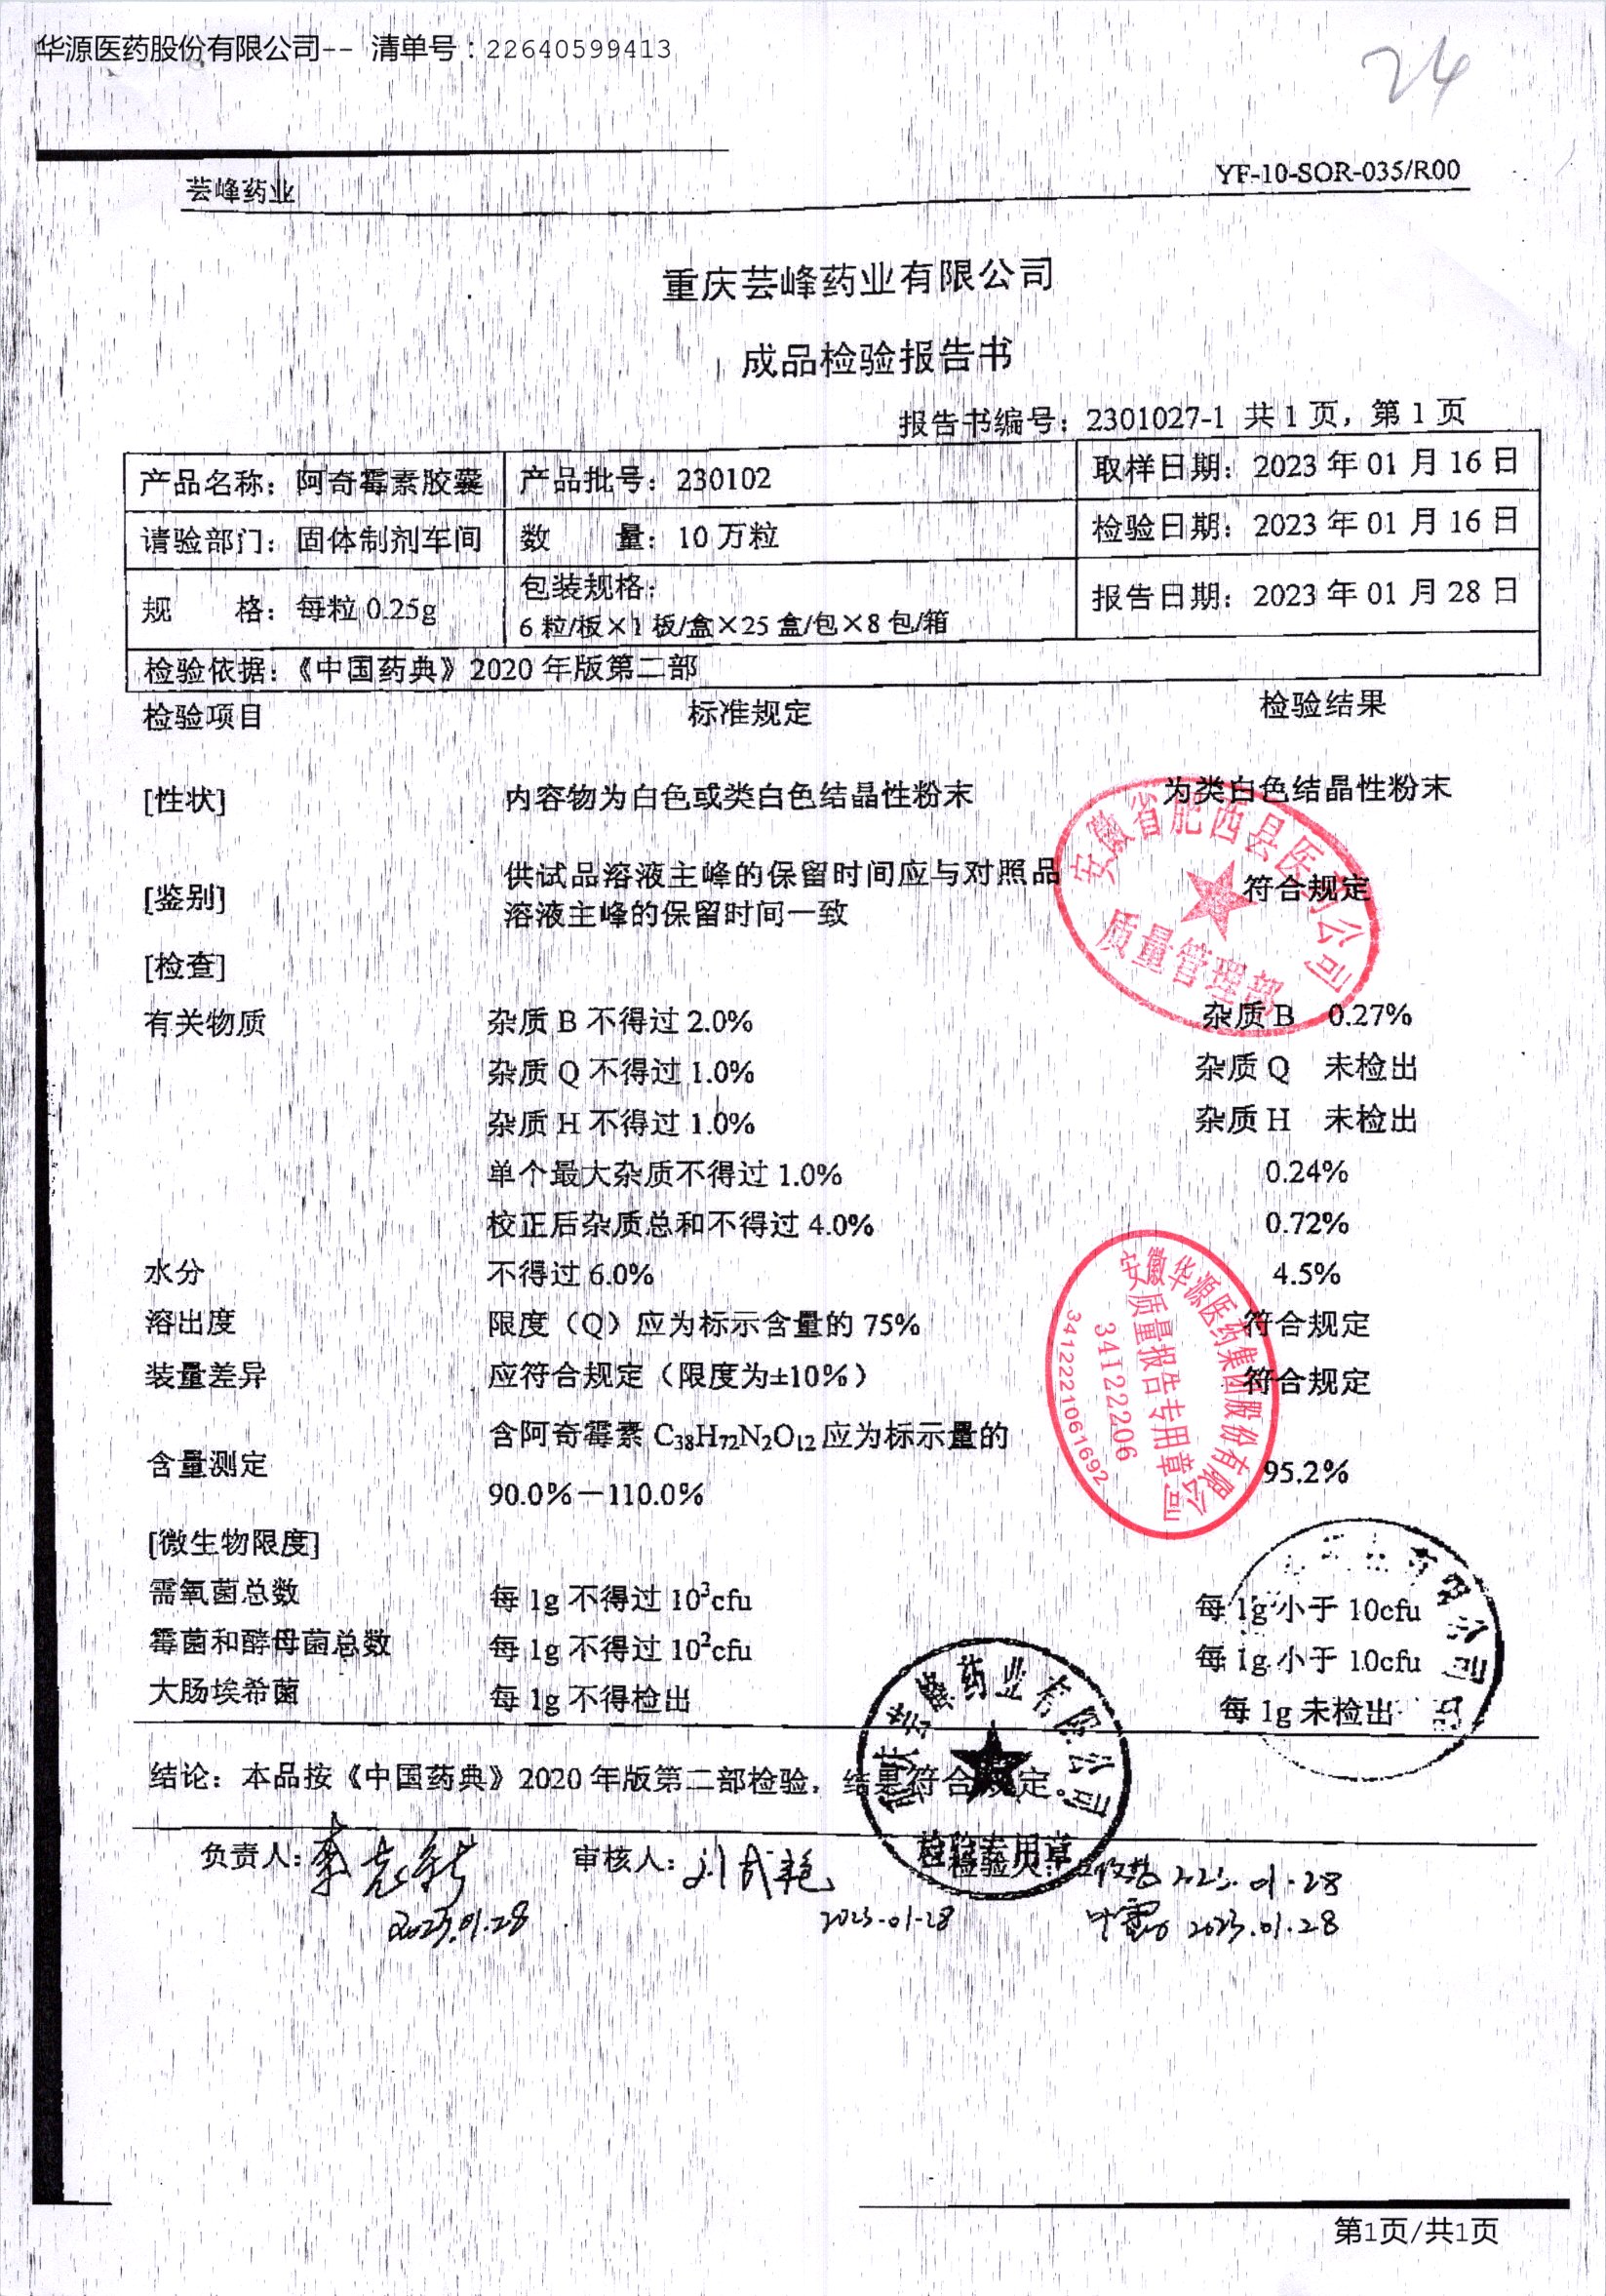 华源医药股份有限公司-- 清单号：22640599413
24
芸峰药业 YF-10-SOR-035/R00
重庆芸峰药业有限公司
成品检验报告书
报告书编号：2301027-1 共1页，第1页
产品名称：阿奇霉素胶囊 产品批号：230102 取样日期：2023年01月16日
请验部门：固体制剂车间 数 量：10万粒 检验日期：2023年01月16日
规 格：每粒0.25g 包装规格： 报告日期：2023年01月28日
6粒/板×1板/盒×25盒/包×8包/箱
检验依据：《中国药典》2020年版第二部
检验项目 标准规定 检验结果
[性状] 内容物为白色或类白色结晶性粉末 为类白色结晶性粉末
[鉴别] 供试品溶液主峰的保留时间应与对照品 符合规定
溶液主峰的保留时间一致
[检查]
有关物质 杂质B不得过2.0% 杂质B 0.27%
杂质Q不得过1.0% 杂质Q 未检出
杂质H不得过1.0% 杂质H 未检出
单个最大杂质不得过1.0% 0.24%
校正后杂质总和不得过4.0% 0.72%
水分 不得过6.0% 4.5%
溶出度 限度（Q）应为标示含量的75% 符合规定
装量差异 应符合规定（限度为±10%） 符合规定
含量测定 含阿奇霉素C₃₈H₇₂N₂O₁₂应为标示量的 95.2%
90.0%－110.0%
[微生物限度]
需氧菌总数 每1g不得过10³cfu 每1g小于10cfu
霉菌和酵母菌总数 每1g不得过10²cfu 每1g小于10cfu
大肠埃希菌 每1g不得检出 每1g未检出
结论：本品按《中国药典》2020年版第二部检验，结果符合规定。
负责人： 审核人：刘成艳 检验人： 2023.01.28
2023.01.28 2023-01-28 叶雪 2023.01.28
安徽省肥西县医药公司
质量管理部
安徽华源医药集团股份有限公司
质量报告专用章
34122206
3412221061692
重庆芸峰药业有限公司
检验专用章
有限公司
第1页/共1页